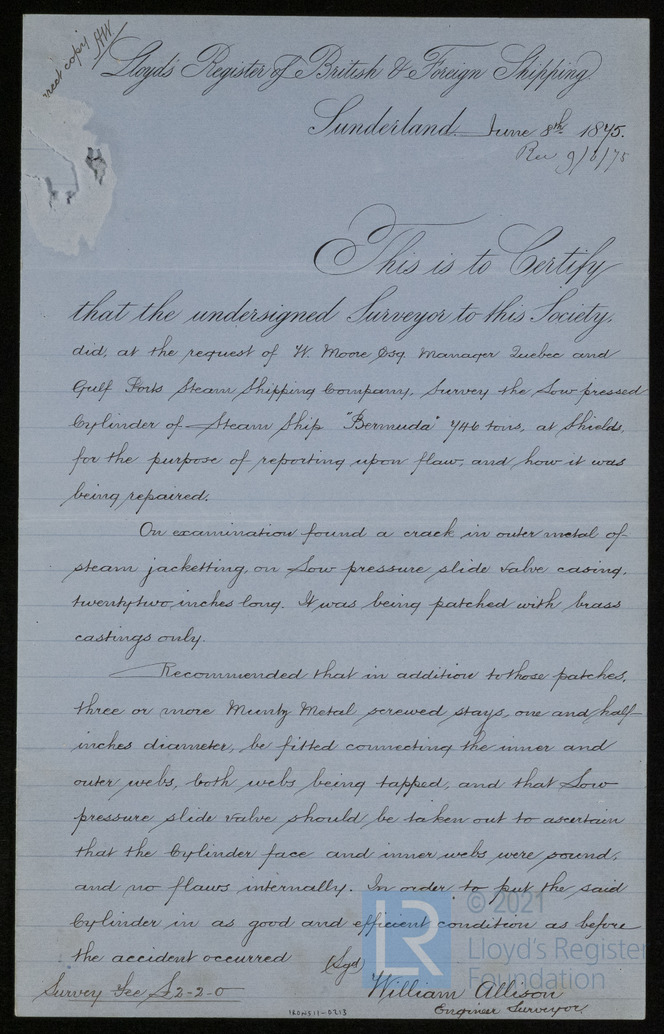 rrect copy AW
Lloyd's Register of British & Foreign Shipping
Sunderland June 8th 1875.
Rec 9/6/75
This is to Certify
that the undersigned Surveyor to this Society,
did, at the request of W. Moore Esq Manager Quebec and
Gulf Ports Steam Shipping Company, Survey the Low pressed
Cylinder of Steam Ship "Bermuda" 746 tons, at Shields,
for the purpose of reporting upon flaw, and how it was
being repaired.
On examination found a crack in outer metal of
steam jacketting, on Low pressure slide valve casing,
twenty two inches long. It was being patched with brass
castings only.
Recommended that in addition to those patches,
three or more Muntz Metal screwed stays, one and half
inches diameter, be fitted connecting the inner and
outer webs, both webs being tapped, and that Low
pressure slide valve should be taken out to ascertain
that the Cylinder face and inner webs were sound,
and no flaws internally. In order to put the said
Cylinder in as good and efficient condition as before
the accident occurred (Sgd)
William Allison
Engineer Surveyor
Survey Fee £2-2-0
IRONS11-0213
LR
© 2021
Lloyd's Register
Foundation